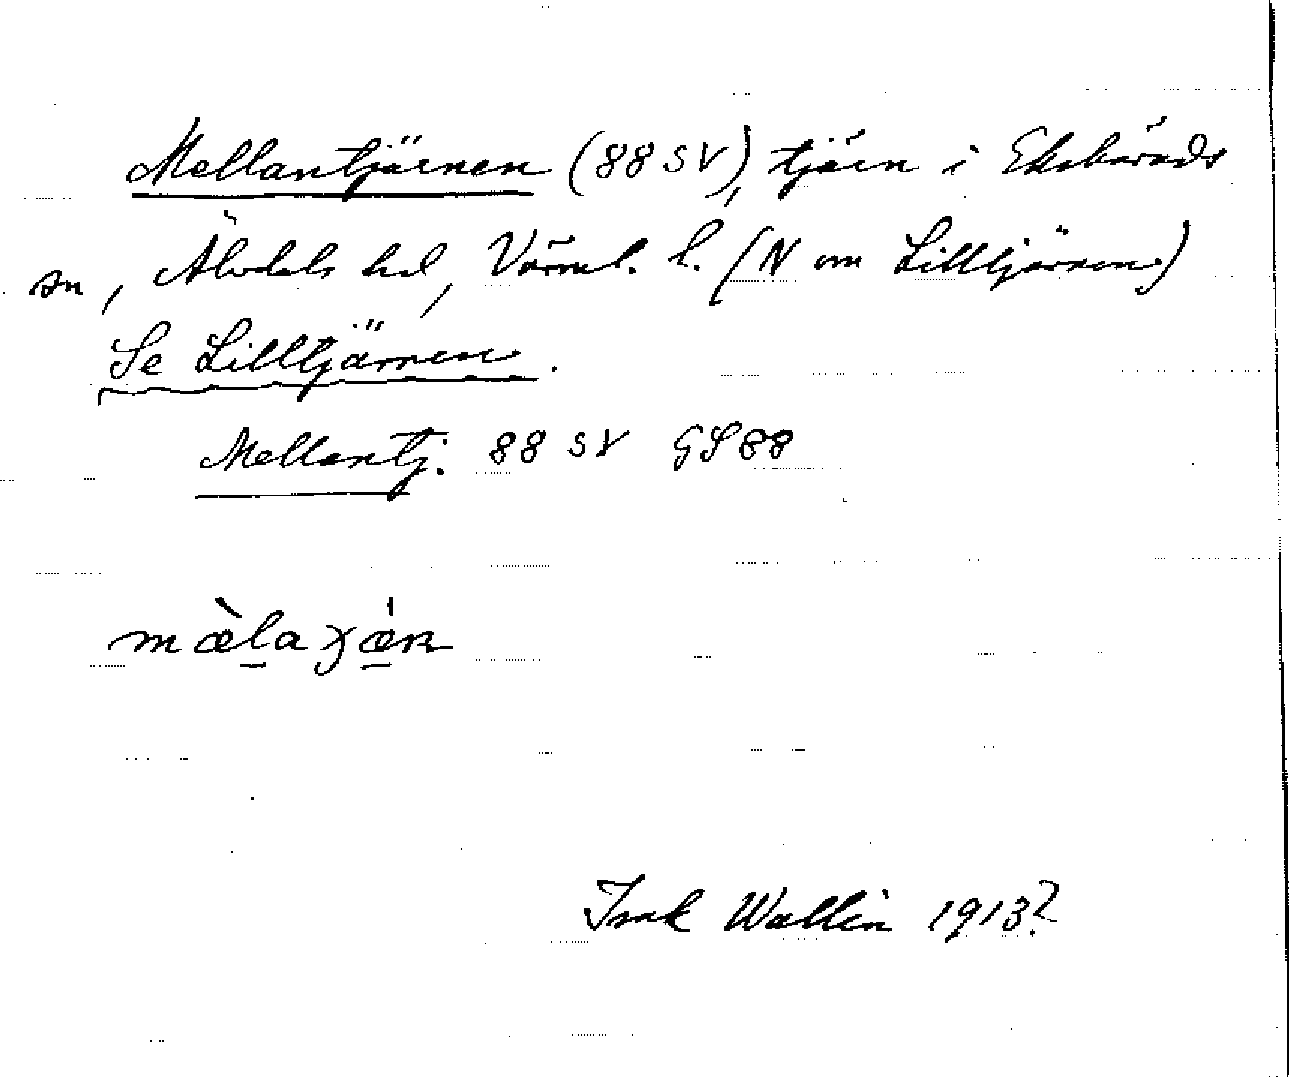 Mellantjärnen (88 SV), tjärn i Ekshärads
sn, Älvdals hd, Värml. l. (N om Lilltjärnen)
Se Lilltjärnen.
Mellantj. 88 SV GS 88
Isak Wallin 1913?